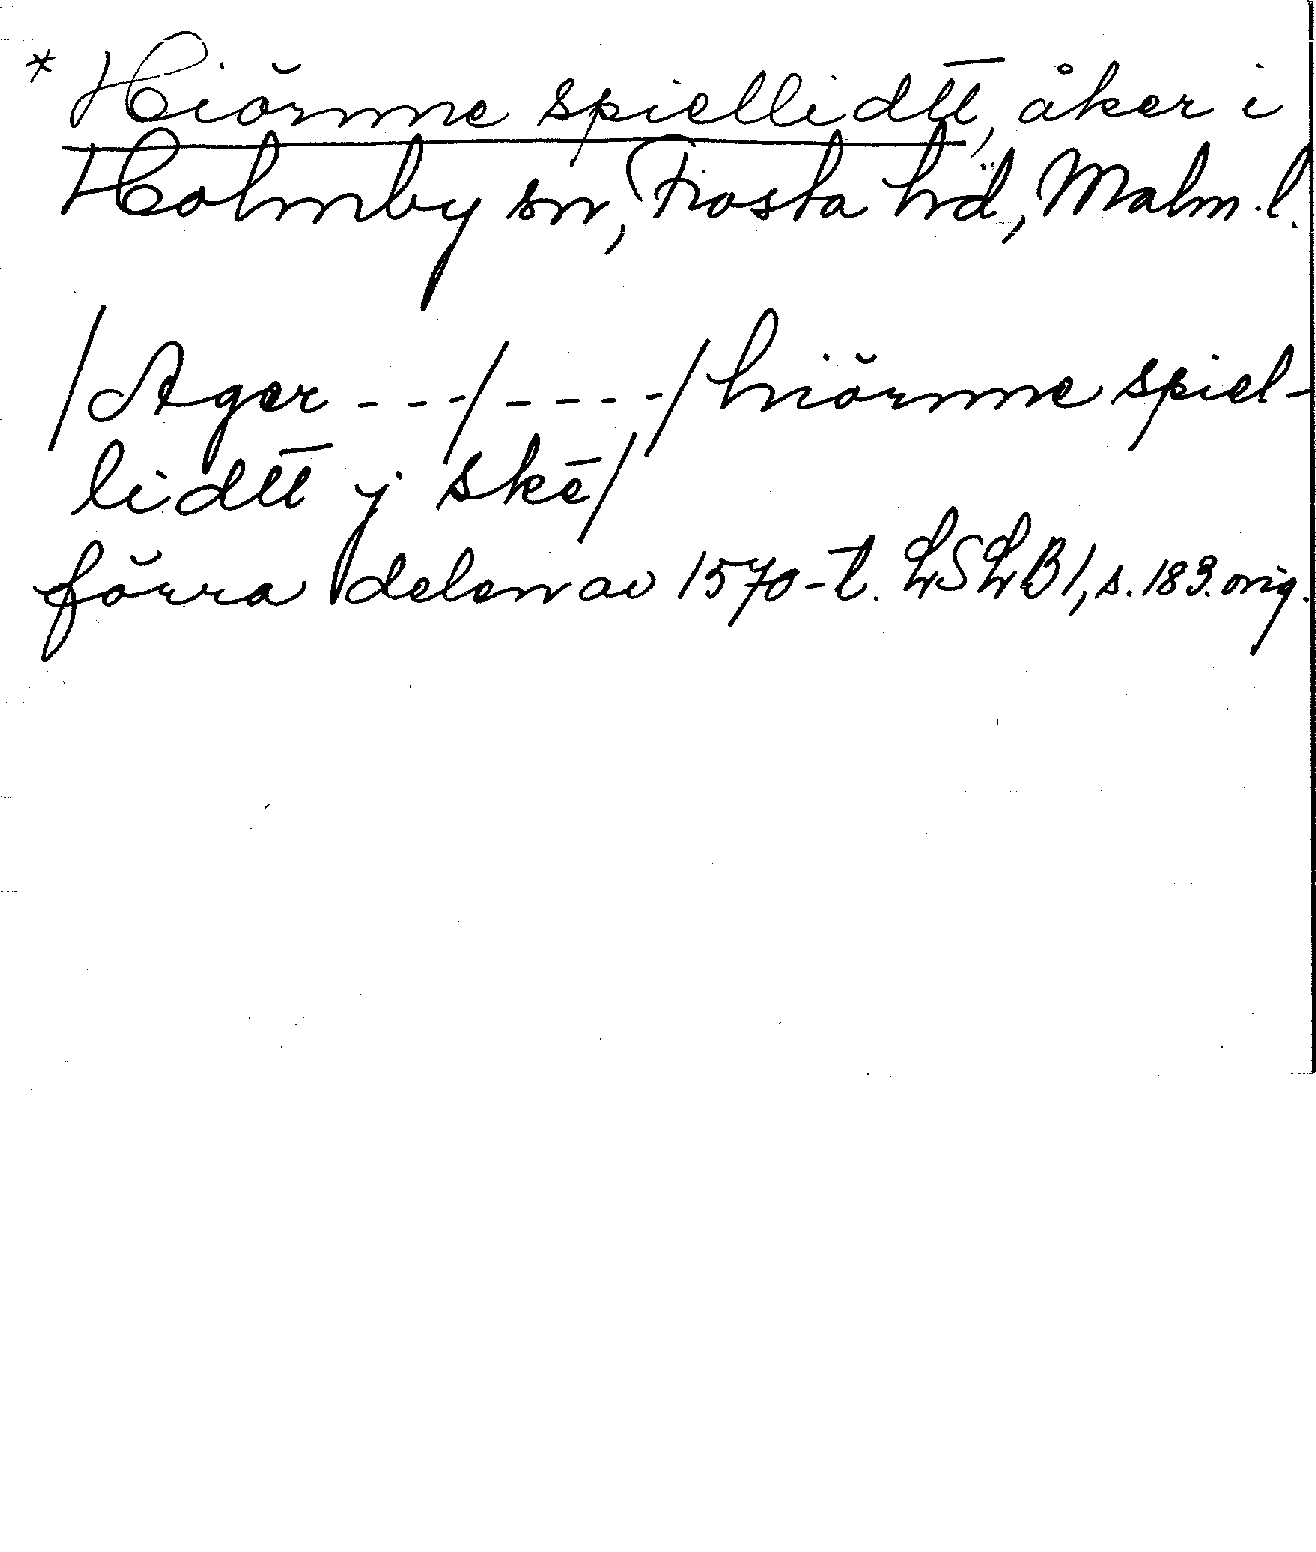 * Hiörnne spiellidtt̅, åker i
Holmby sn, Frosta hd, Malm. l.
/Ager - - -/ - - - -/ hiörnne spiel-
lidtt̅ j skē/
förra delen av 1570-t. LSLB 1, s. 183. orig.